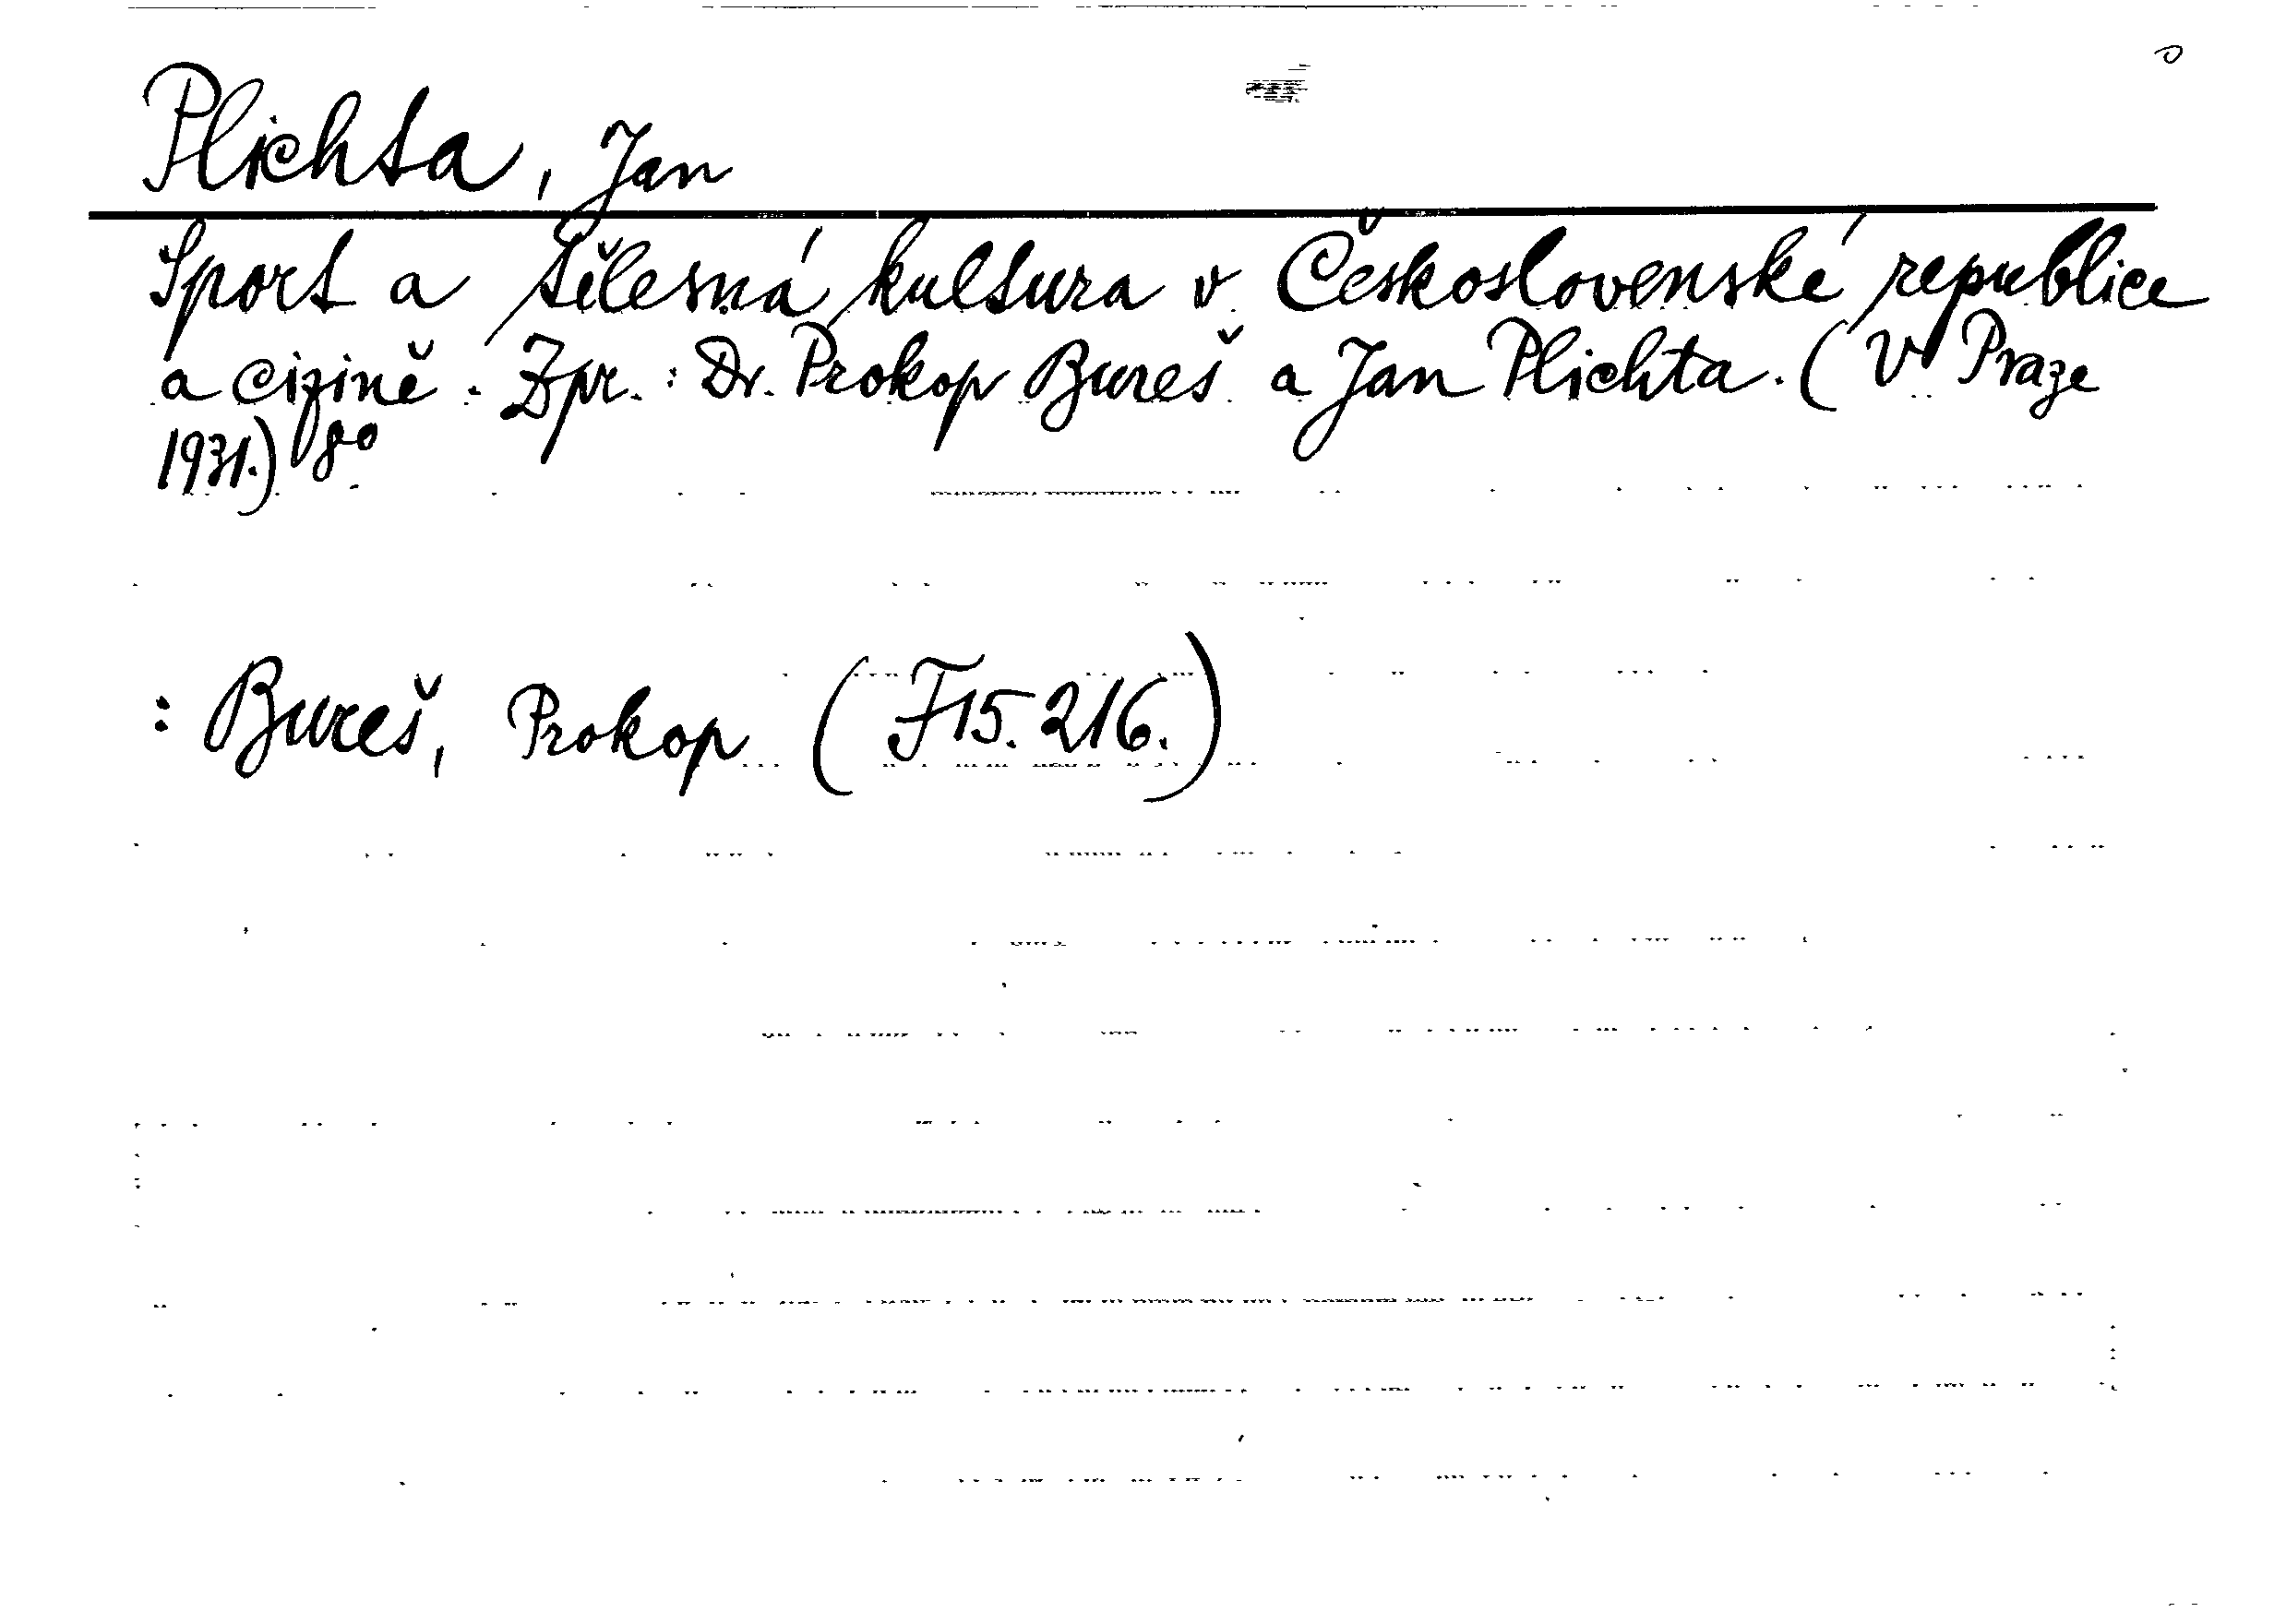 Plichta, Jan
Sport a tělesná kultura v Československé republice
a cizině. Zpr.: Dr. Prokop Bureš a Jan Plichta. (V Praze
1931.) 8°
: Bureš, Prokop (F 15.216.)